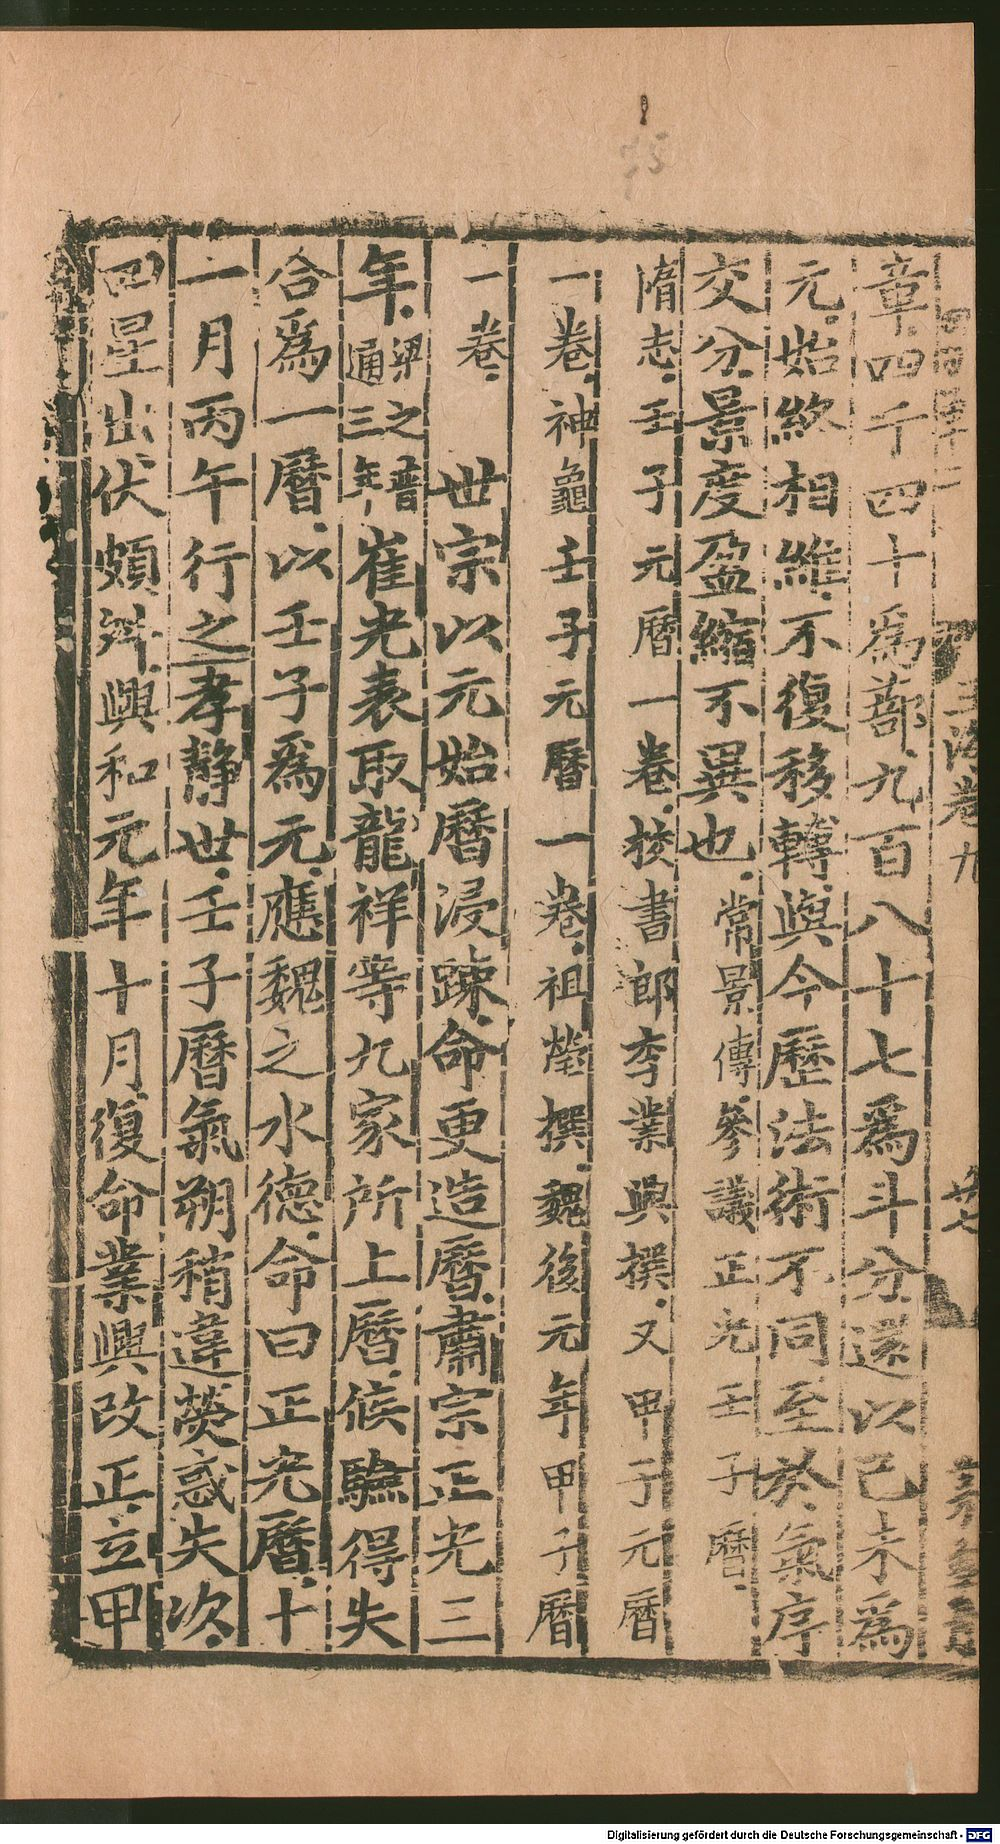 章四千四十爲蔀九百八十七爲斗分還以己未爲
元始終相維不復移轉與今歷法術不同至於氣序
交分景度盈縮不異也常景傳參議正光壬子曆
隋志壬子元曆一卷校書郎李業興撰又甲子元曆
一卷神龜壬子元曆一卷祖瑩撰魏後元年甲子曆
一卷 世宗以元始曆浸踈命更造曆肅宗正光三
年梁之普通三年崔光表取龍祥等九家所上曆候驗得失
合爲一曆以壬子爲元應魏之水德命曰正光曆十
一月丙午行之孝靜世壬子曆氣朔稍違熒惑失次
四星出伏頗舛興和元年十月復命業興改正立甲
玉海卷九
廿七
Digitalisierung gefördert durch die Deutsche Forschungsgemeinschaft - DFG